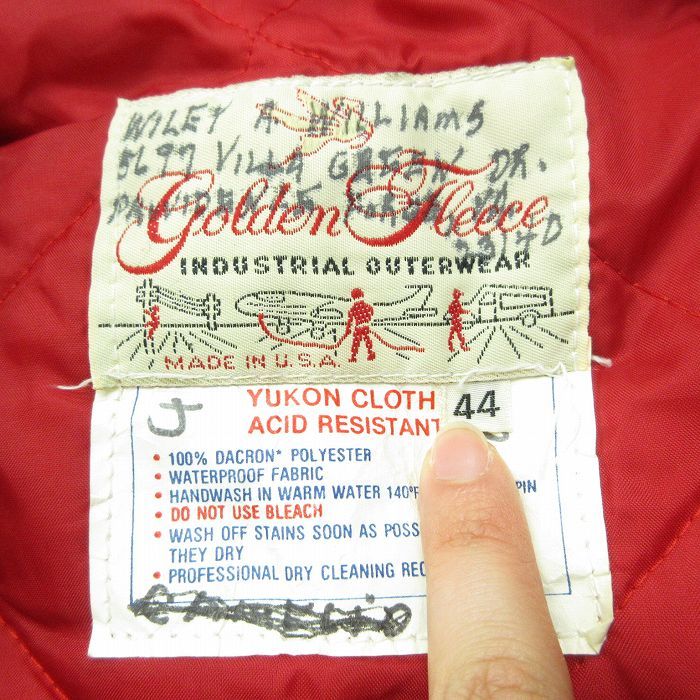 WILEY A WILLIAMS
5699 VILLA GREEN DR.
23140
Golden Fleece
INDUSTRIAL OUTERWEAR
MADE IN U.S.A.
J
YUKON CLOTH 44
ACID RESISTANT
• 100% DACRON* POLYESTER
• WATERPROOF FABRIC
• HANDWASH IN WARM WATER 140°F PIN
• DO NOT USE BLEACH
• WASH OFF STAINS SOON AS POSS
THEY DRY
• PROFESSIONAL DRY CLEANING REC